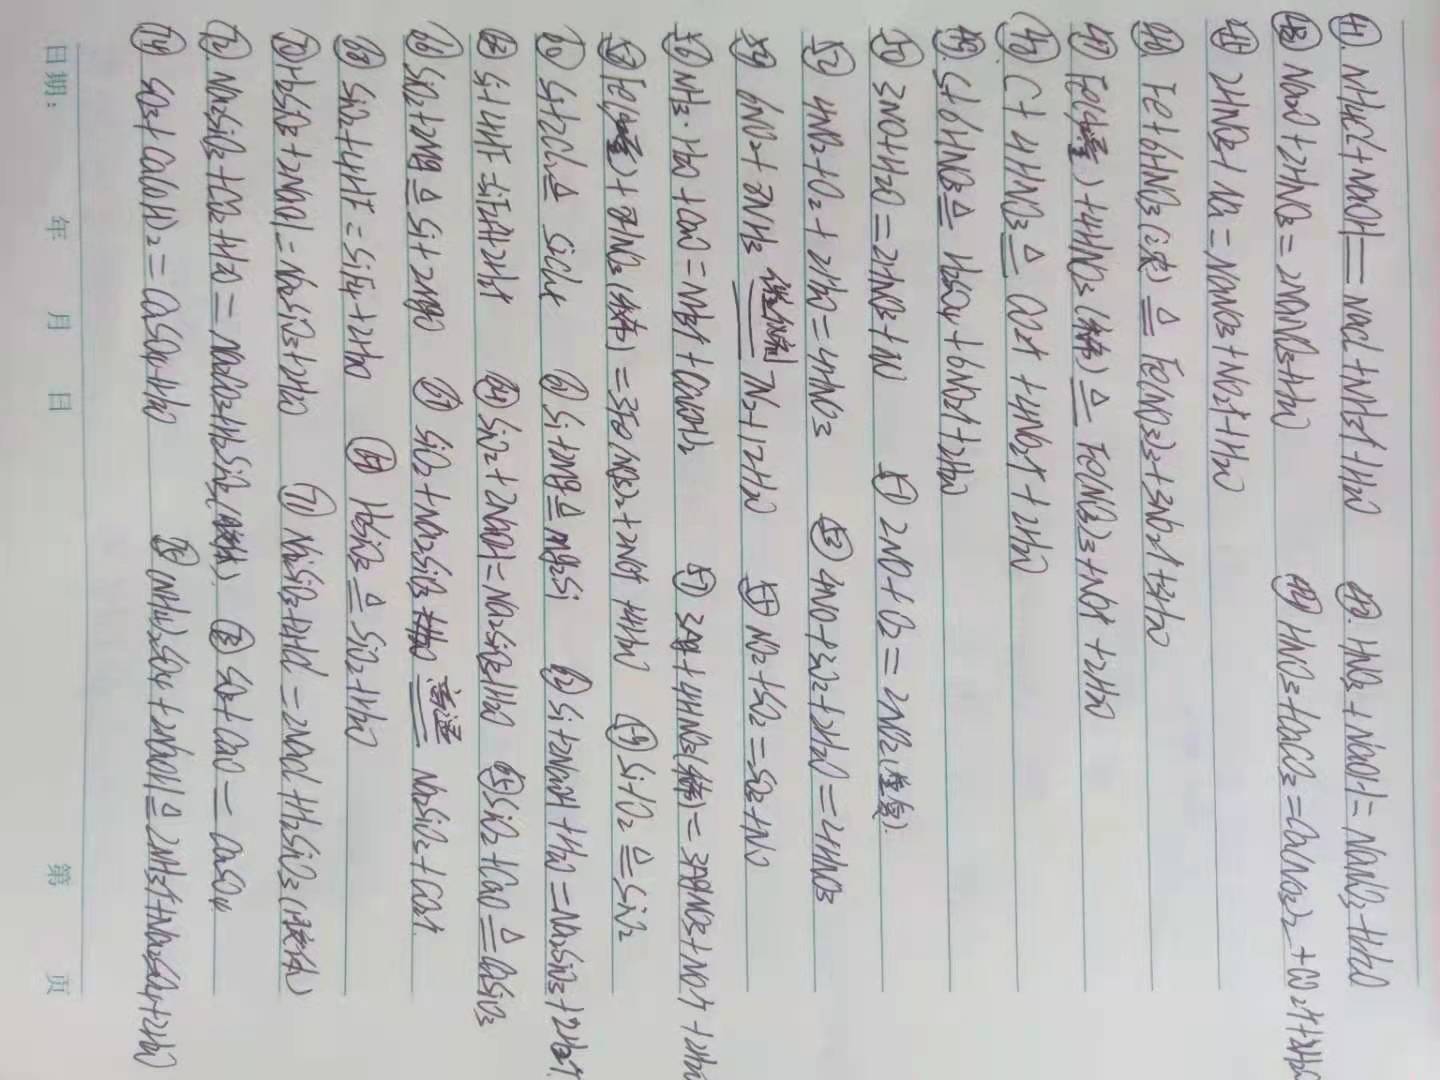 ㊶. NH4Cl+NaOH══NaCl+NH3↑+H2O ㊷. HNO3+NaOH=NaNO3+H2O
㊸ Na2O+2HNO3=2NaNO3+H2O ㊹ HNO3+CaCO3=Ca(NO3)2+CO2↑+H2O
㊺ 2HNO3+ =NaNO3+NO2↑+H2O
㊻. Fe+6HNO3(浓)≜Fe(NO3)3+3NO2↑+3H2O
㊼ Fe(少量)+4HNO3(稀)≜Fe(NO3)3+NO↑+2H2O
㊽. C+4HNO3≜CO2↑+4NO2↑+2H2O
㊾. S+6HNO3≜H2SO4+6NO2↑+2H2O
㊿ 3NO2+H2O=2HNO3+NO 51 2NO+O2=2NO2(
52 4NO2+O2+2H2O=4HNO3 53 4NO+3O2+2H2O=4HNO3
54 6NO2+8NH3 催化剂══ 7N2+12H2O 55 NO2+SO2=SO3+NO
56 NH3·H2O+CaO=NH3↑+Ca(OH)2 57 3Ag+4HNO3(稀)=3AgNO3+NO↑+2H2O
58 Fe(过量)+8HNO3(稀)=3Fe(NO3)2+2NO↑+4H2O 59 Si+O2≜SiO2
60 Si+2Cl2≜SiCl4 61 Si+2Mg≜Mg2Si 62 Si+2NaOH+H2O=Na2SiO3+2H2↑
63 Si+4HF=SiF4↑+2H2↑ 64 SiO2+2NaOH=Na2SiO3+H2O 65 SiO2+CaO≜CaSiO3
66 SiO2+2Mg≜Si+2MgO 67 SiO2+Na2 高温══ Na2SiO3+CO2↑
68 SiO2+4HF=SiF4+2H2O 69 H2SiO3≜SiO2+H2O
70 H2SiO3+2NaOH=Na2SiO3+2H2O 71 Na2SiO3+2HCl=2NaCl+H2SiO3(胶体)
72. Na2SiO3+CO2+H2O=Na2CO3+H2SiO3(胶体) 73 SO3+CaO=CaSO4
74 SO3+Ca(OH)2=CaSO4+H2O 75 (NH4)2SO4+2NaOH≜2NH3↑+Na2SO4+2H2O
日期: 年 月 日 第 页